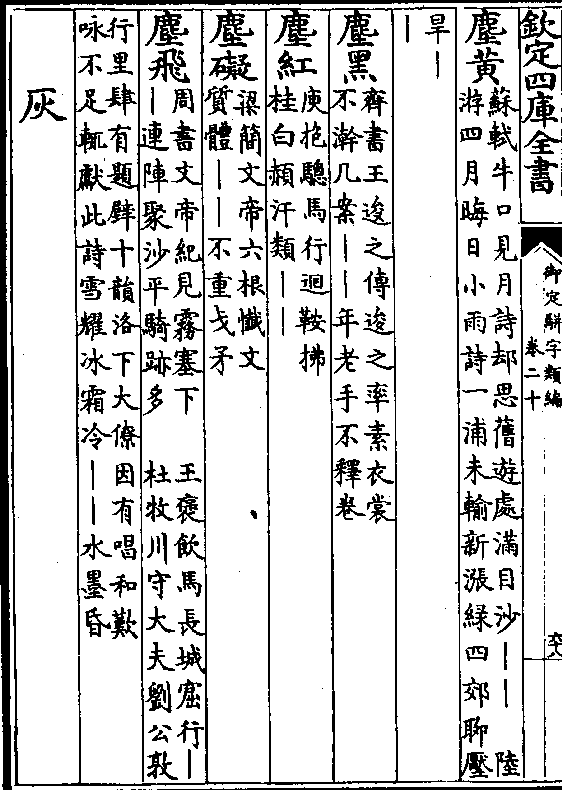 欽定四庫全書
御定駢字類編
卷二十
塵黄
蘇軾牛口見月詩却思舊遊處滿目沙｜｜　陸
游四月晦日小雨詩一浦未輸新漲緑四郊聊壓
旱｜
｜
塵黑
齊書王逡之傳逡之率素衣裳
不澣几案｜｜年老手不釋卷
塵紅
庾抱驄馬行迴鞍拂
桂白赬汗類｜｜
塵礙
梁簡文帝六根懺文
質體｜｜不重戈矛
塵飛
周書文帝紀見霧塞下　王褒飲馬長城窟行｜
｜連陣聚沙平騎跡多　杜牧川守大夫劉公敦
行里肆有題壁十韻洛下大僚因有唱和歎
咏不足輒獻此詩雪耀冰霜冷｜｜水墨昏
灰